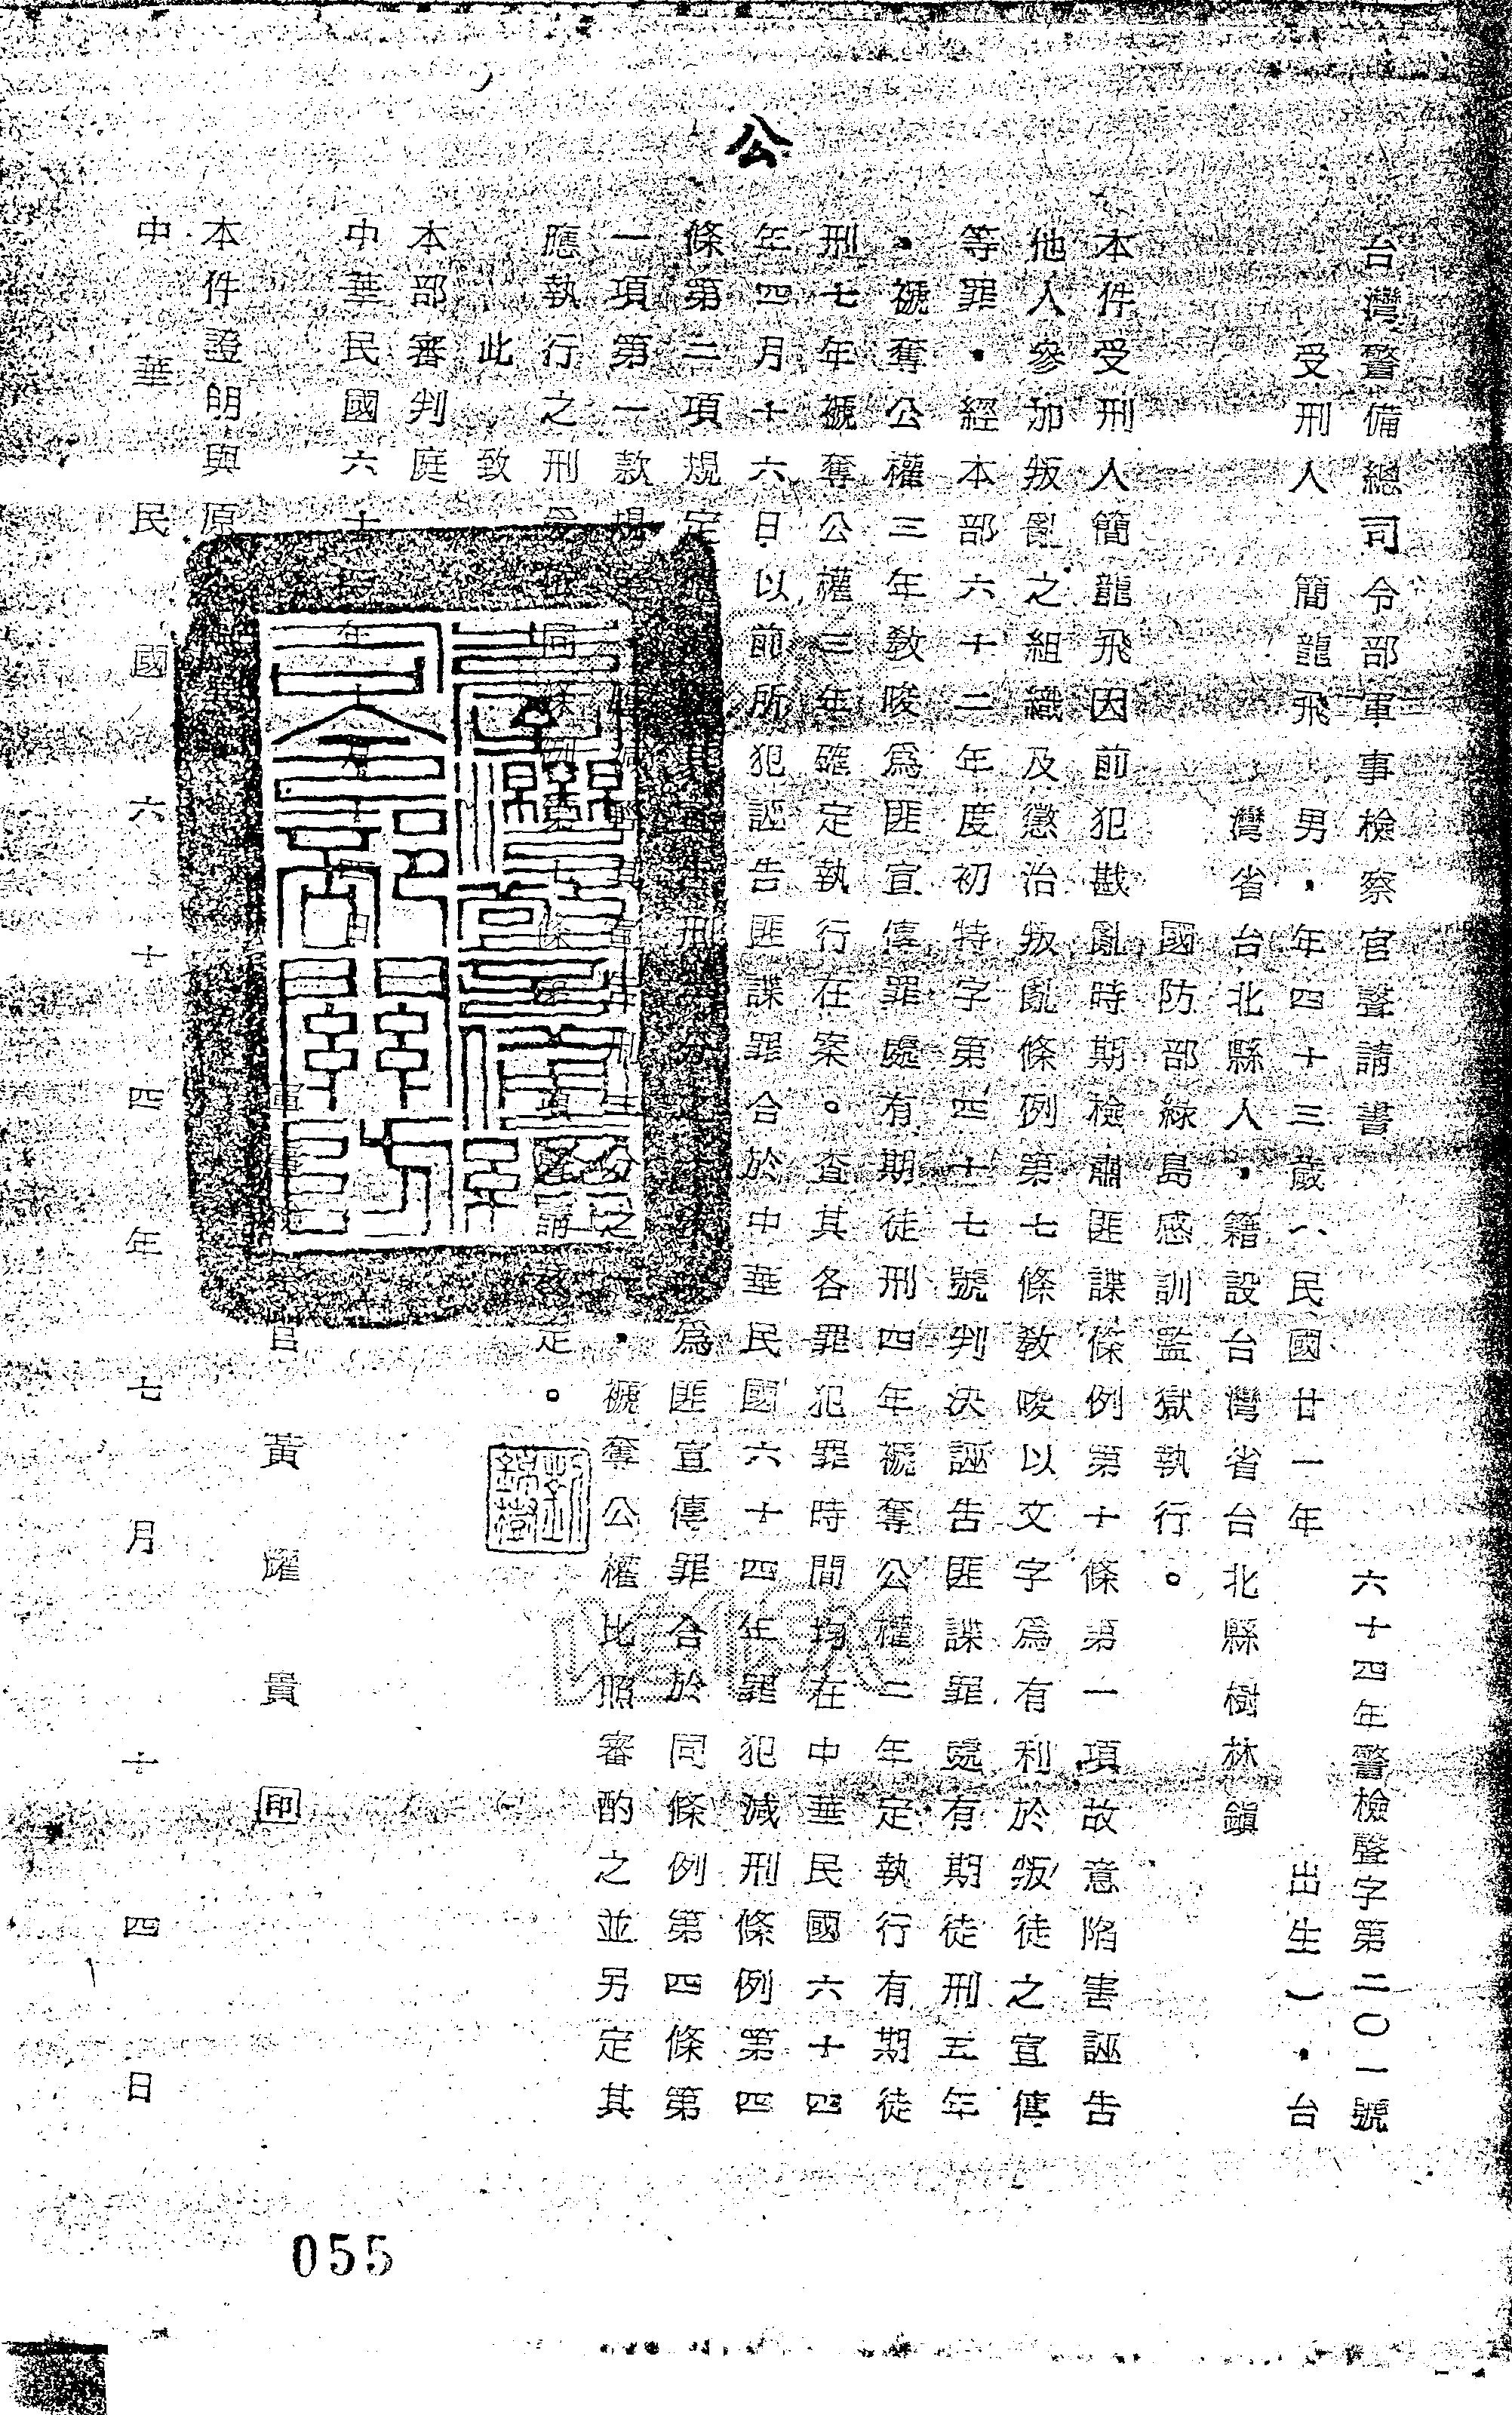 公
台灣警備總司令部軍事檢察官聲請書
六十四年警檢聲字第二〇一號
受刑人 簡龍飛 男·年四十三歲(民國廿一年 出生)·台
灣省台北縣人,籍設台灣省台北縣樹林鎮
國防部綠島感訓監獄執行。
本件受刑人簡龍飛因前犯戡亂時期檢肅匪諜條例第十條第一項故意陷害誣告
他人參加叛亂之組織及懲治叛亂條例第七條教唆以文字為有利於叛徒之宣傳
等罪·經本部六十二年度初特字第四十七號判決誣告匪諜罪處有期徒刑五年
·褫奪公權三年教唆為匪宣傳罪處有期徒刑四年褫奪公權二年定執行有期徒
刑七年褫奪公權三年確定執行在案。查其各罪犯罪時間均在中華民國六十四
年四月十六日以前所犯誣告匪諜罪合於中華民國六十四年罪犯減刑條例第四
條第二項規定 刑 為匪宣傳罪合於同條例第四條第
一項第一款規 刑 之 ·褫奪公權比照審酌之並另定其
應執行之刑 同 七條 定。
此 致
本部審判庭
中華民國六十 年 月 日
官 黃曜貴 印
本件證明與原
中華民國六十四年七月十四日
劉錦樹
055